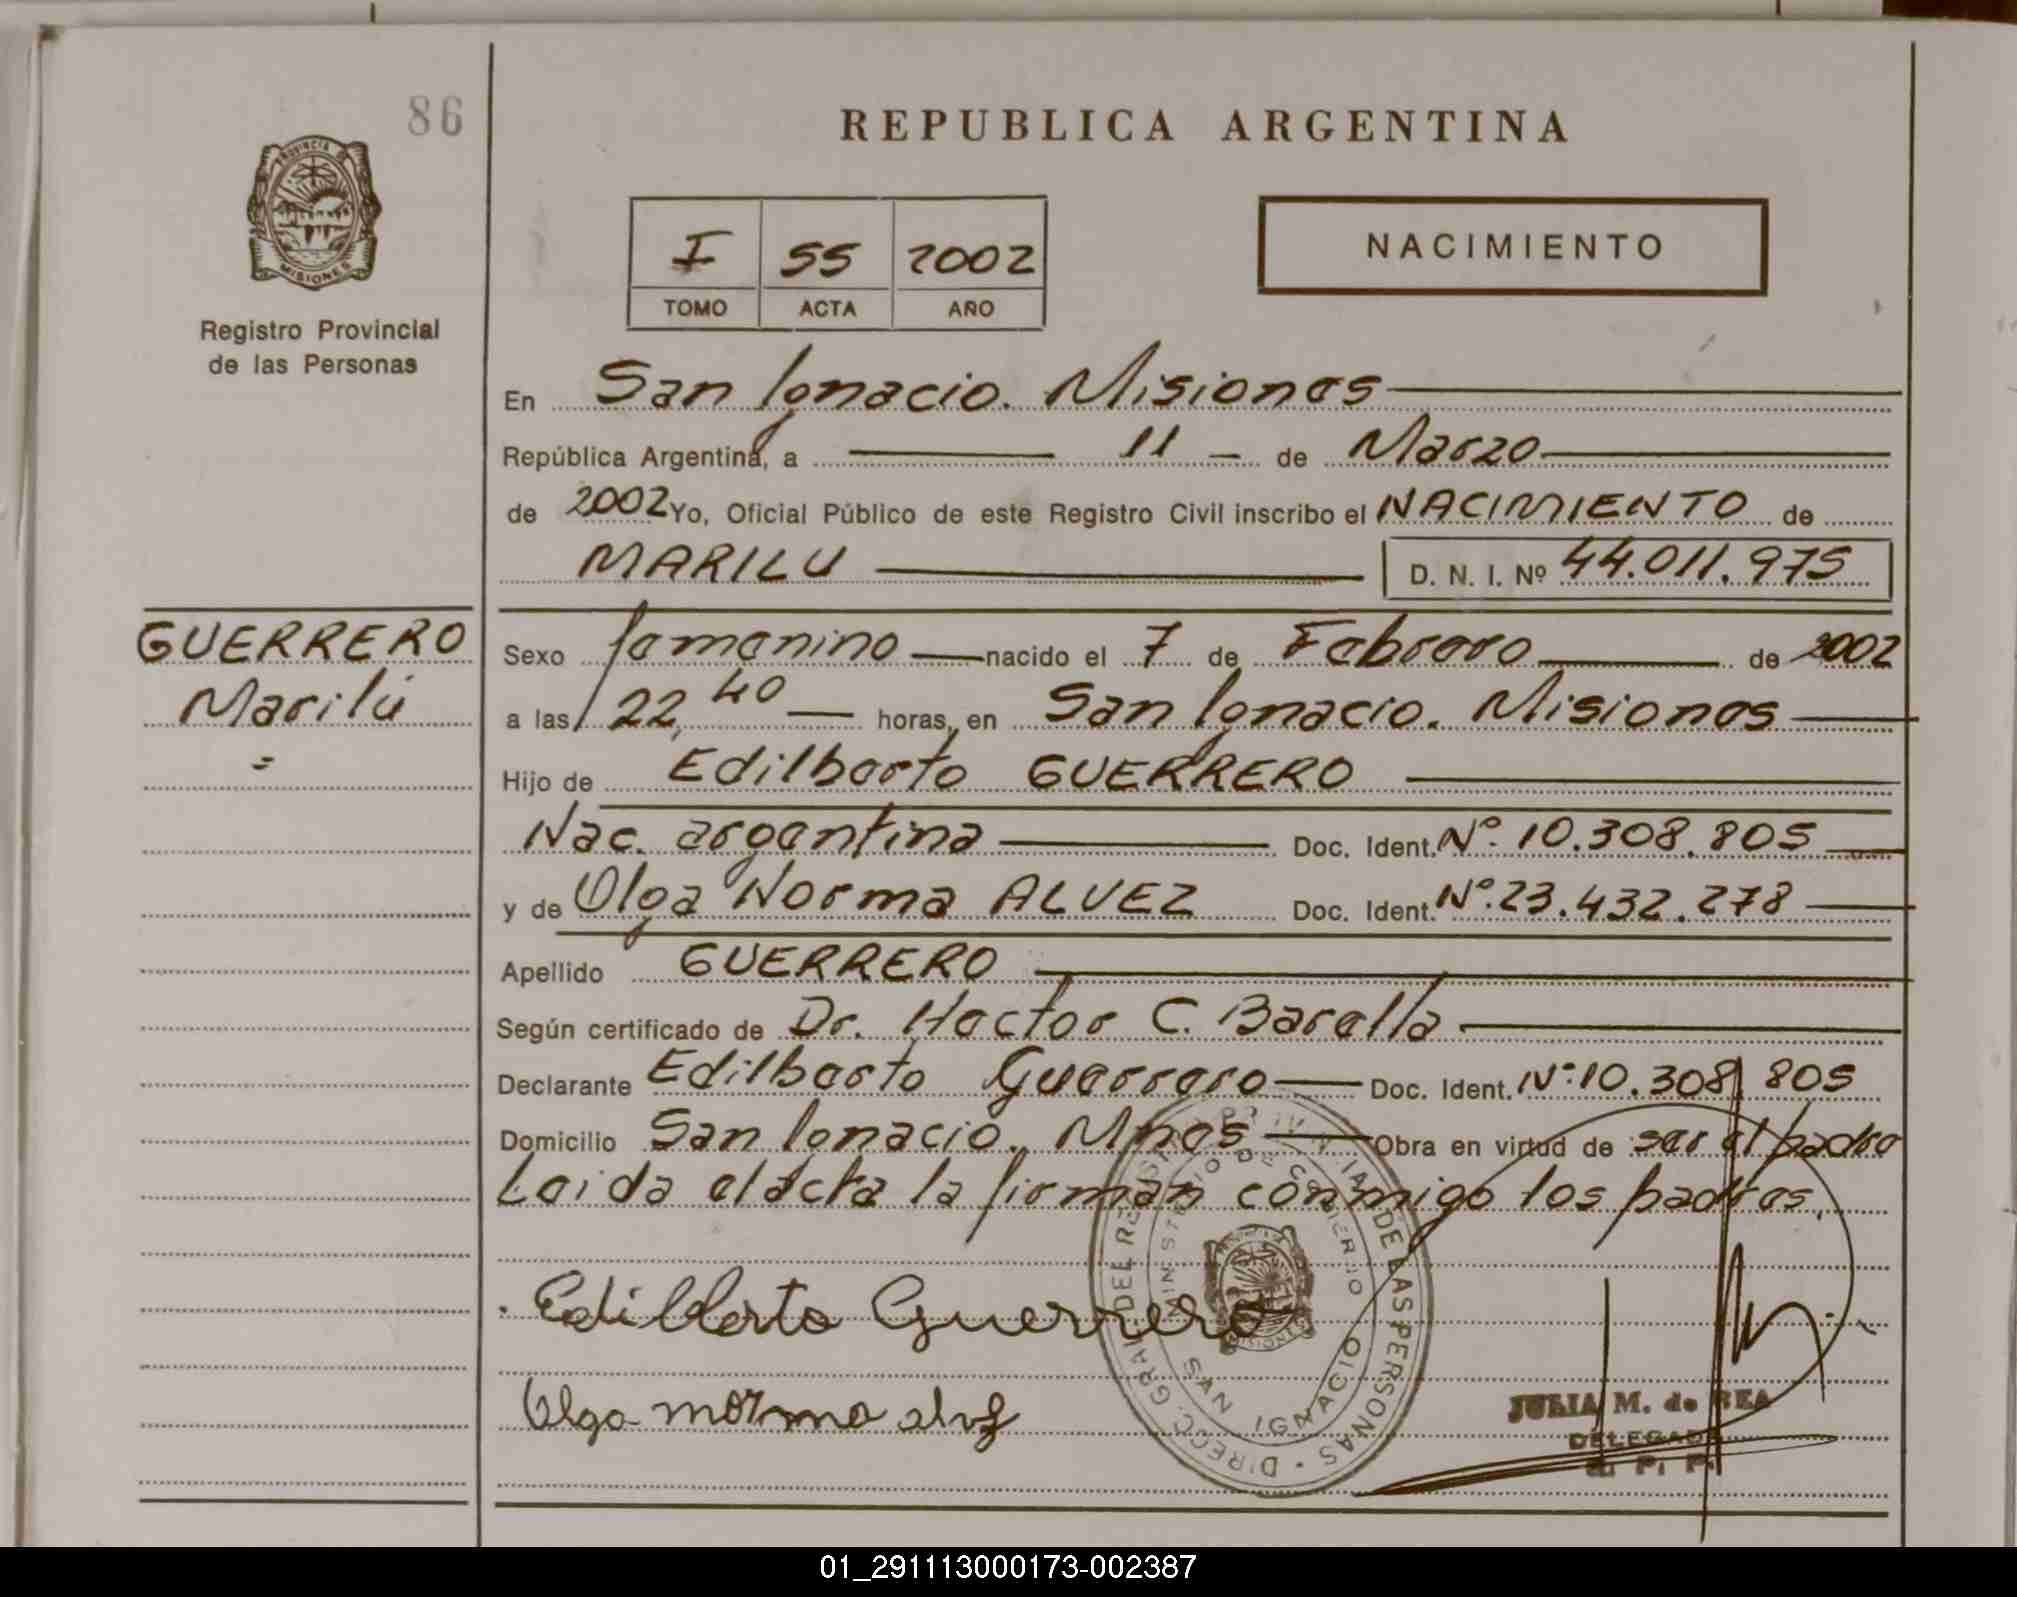 86
REPUBLICA ARGENTINA
PROVINCIA DE MISIONES
Registro Provincial
de las Personas
I 55 2002
TOMO ACTA AÑO
NACIMIENTO
En San Ignacio. Misiones
República Argentina, a 11 de Marzo
de 2002 Yo, Oficial Público de este Registro Civil inscribo el NACIMIENTO de
MARILU D. N. I. Nº 44.011.975
GUERRERO
Marilú
Sexo femenino nacido el 7 de Febrero de 2002
a las 22,40 horas, en San Ignacio. Misiones
Hijo de Edilberto GUERRERO
Nac. argentina Doc. Ident. Nº. 10.308.805
y de Olga Norma ALVEZ Doc. Ident. Nº. 23.432.278
Apellido GUERRERO
Según certificado de Dr. Hector C. Barella
Declarante Edilberto Guerrero Doc. Ident. Nº. 10.308.805
Domicilio San Ignacio. Mnes Obra en virtud de ser el padre
Leida el acta la firman conmigo los padres.
Edilberto Guerrero
Olga Norma
DIRECC. GRAL DEL REGISTRO PROVINCIAL DE LAS PERSONAS
MINISTERIO DE GOBIERNO
SAN IGNACIO
MISIONES
JULIA M. de REA
DELEGADA
R. P. P.
01_291113000173-002387